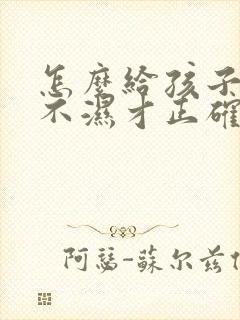 怎麼給孩子
不濕才正確
阿瑟-蘇尔兹伯